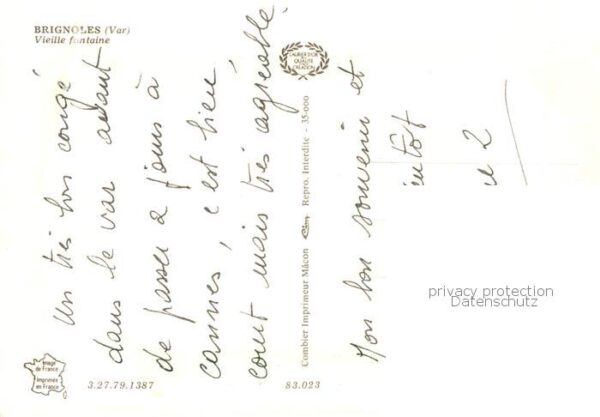 BRIGNOLES (Var)
Vieille fontaine
LAURIER D'OR
QUALITÉ
CRÉATION
Un très bon congé
dans le var avant
de passer 2 jours à
cannes, c'est bien
court mais très agréable.
Combier Imprimeur Mâcon Cim Repro. Interdite - 35-000
Mon bon souvenir et
à
privacy protection
Datenschutz
Image
de France
Imprimée
en France
3.27.79.1387
83.023